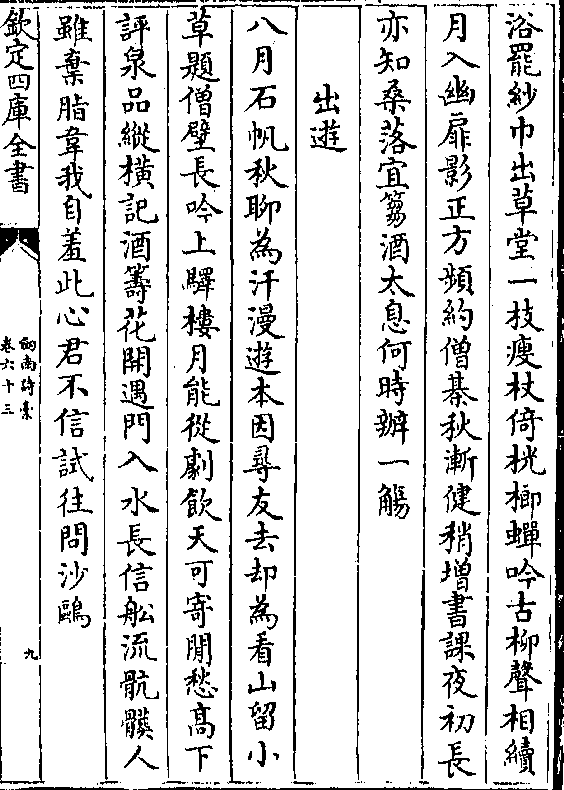 浴罷紗巾出草堂一枝瘦杖倚桄榔蟬吟古柳聲相續
月入幽扉影正方頻約僧棊秋漸健稍增書課夜初長
亦知桑落宜篘酒太息何時辦一觴
出遊
八月石帆秋聊為汗漫遊本因尋友去却為看山留小
草題僧壁長吟上驛樓月能從劇飲天可寄閒愁高下
評泉品縱橫記酒籌花開遇門入水長信舩流骯髒人
雖棄脂韋我自羞此心君不信試往問沙鷗
欽定四庫全書
劒南詩藁
卷六十三
九